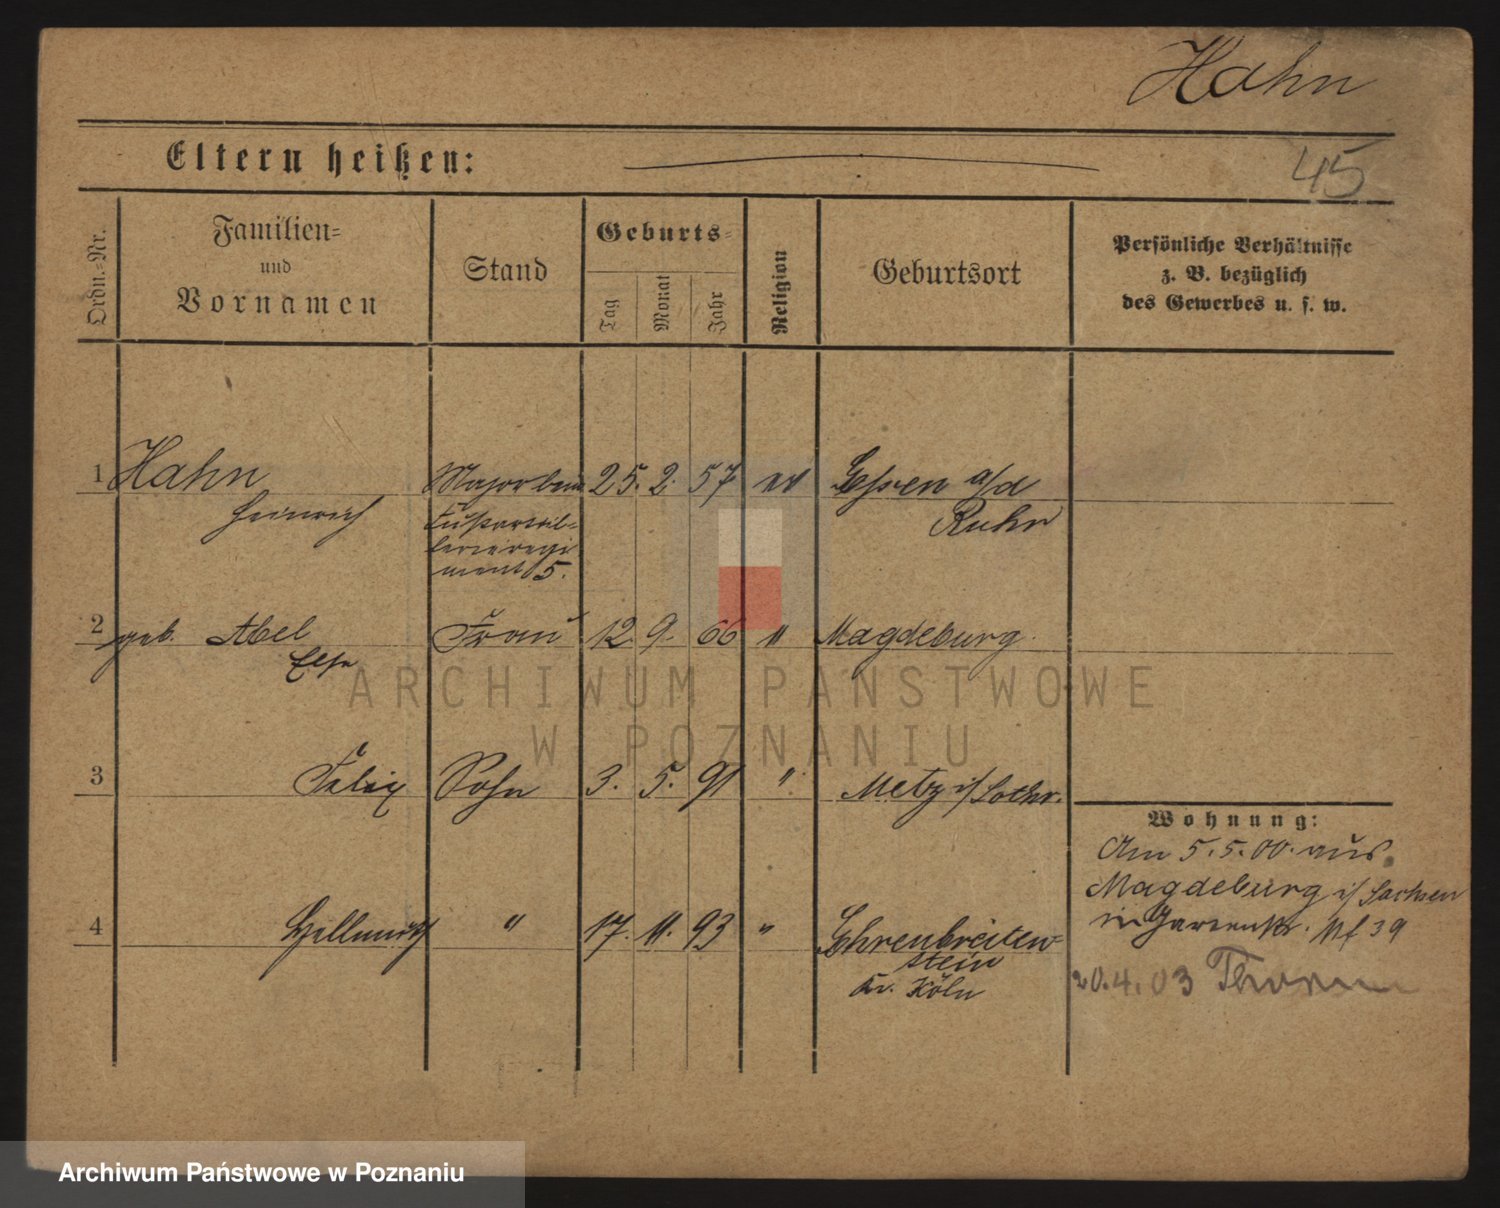 Hahn
Eltern heißen:
45
Ordn.=Nr.
Familien=
und
Vornamen
Stand
Geburts=
Tag
Monat
Jahr
Religion
Geburtsort
Persönliche Verhältnisse
z. B. bezüglich
des Gewerbes u. s. w.
1 Hahn Major beim 25. 2. 57 ev Essen a/d
Heinrich Fußartil= Ruhr
lerieregi
ment 5.
2 geb. Abel Frau 12. 9. 66 " Magdeburg.
Else
ARCHIWUM PAŃSTWOWE
W POZNANIU
3 Felix Sohn 3. 5. 91 " Metz i/ Lothr.
Wohnung:
Am 5. 5. 00. aus
Magdeburg i/ Sachsen
4 Hellmuth " 17. 11. 93 " Ehrenbreiten-
stein
Kr. Köln
in 39
20.4.03 Thorn
Archiwum Państwowe w Poznaniu